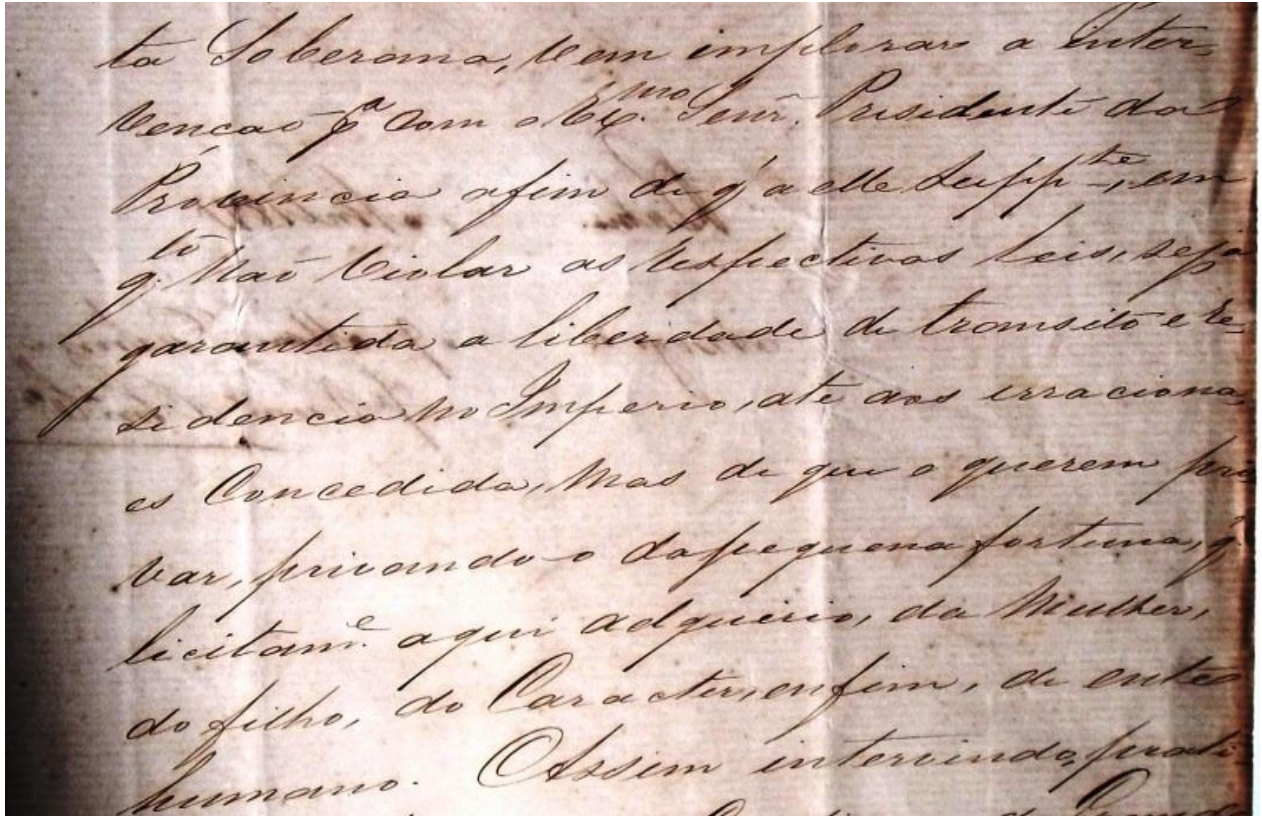 ta Soberana, vem implorar a inter-
venção pª com o Exmo. Senr. Presidente da
Provincia afim de q' a elle Suppte., em
q.to não violar as respectivas leis, seja
garantida a liberdade de transito e re-
sidencia no Imperio, até aos irraciona-
es Concedida, mas de que o querem pri-
var, privando-o da pequena fortuna, q'
licitam.e aqui adquerio, da Mulher,
do filho, do Caracter, enfim, de ente
humano. Assim intervindo, prati-